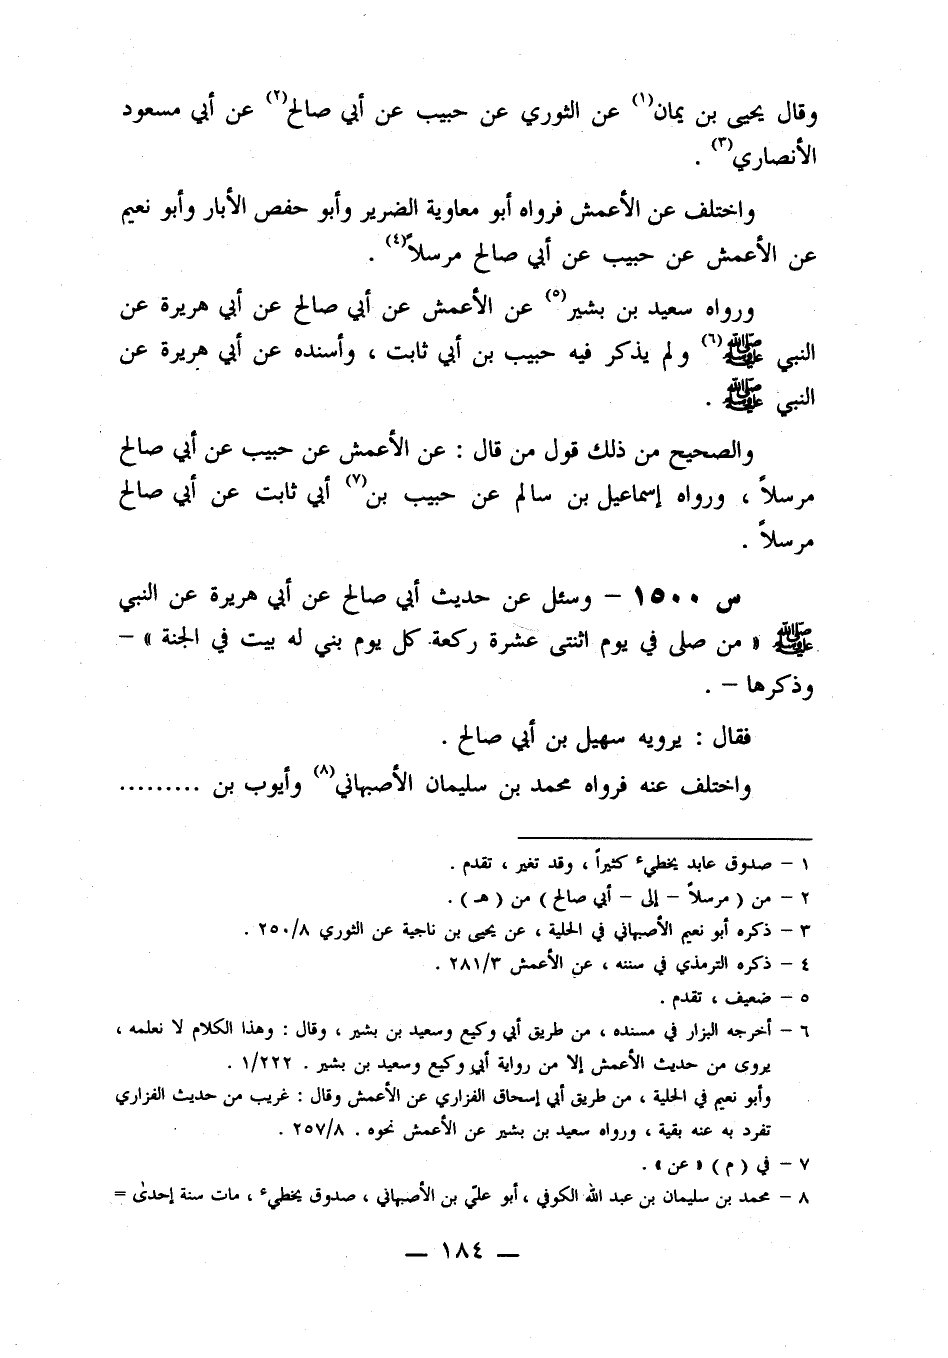 وقال يحيى بن يمان(١) عن الثوري عن حبيب عن أبي صالح(٢) عن أبي مسعود
الأنصاري(٣) .
واختلف عن الأعمش فرواه أبو معاوية الضرير وأبو حفص الأبار وأبو نعيم
عن الأعمش عن حبيب عن أبي صالح مرسلاً(٤) .
ورواه سعيد بن بشير(٥) عن الأعمش عن أبي صالح عن أبي هريرة عن
النبي ﷺ(٦) ولم يذكر فيه حبيب بن أبي ثابت ، وأسنده عن أبي هريرة عن
النبي ﷺ .
والصحيح من ذلك قول من قال : عن الأعمش عن حبيب عن أبي صالح
مرسلاً ، ورواه إسماعيل بن سالم عن حبيب بن(٧) أبي ثابت عن أبي صالح
مرسلاً .
س ١٥٠٠ – وسئل عن حديث أبي صالح عن أبي هريرة عن النبي
ﷺ « من صلى في يوم اثنتى عشرة ركعة كل يوم بني له بيت في الجنة » –
وذكرها – .
فقال : يرويه سهيل بن أبي صالح .
واختلف عنه فرواه محمد بن سليمان الأصبهاني(٨) وأيوب بن .........
١ – صدوق عابد يخطيء كثيراً ، وقد تغير ، تقدم .
٢ – من ( مرسلاً – إلى – أبي صالح ) من ( هـ ) .
٣ – ذكره أبو نعيم الأصبهاني في الحلية ، عن يحيى بن ناجية عن الثوري ٢٥٠/٨ .
٤ – ذكره الترمذي في سننه ، عن الأعمش ٢٨١/٣ .
٥ – ضعيف ، تقدم .
٦ – أخرجه البزار في مسنده ، من طريق أبي وكيع وسعيد بن بشير ، وقال : وهذا الكلام لا نعلمه ،
يروى من حديث الأعمش إلا من رواية أبي وكيع وسعيد بن بشير . ١/٢٢٢ .
وأبو نعيم في الحلية ، من طريق أبي إسحاق الفزاري عن الأعمش وقال : غريب من حديث الفزاري
تفرد به عنه بقية ، ورواه سعيد بن بشير عن الأعمش نحوه . ٢٥٧/٨ .
٧ – في ( م ) « عن » .
٨ – محمد بن سليمان بن عبد الله الكوفي ، أبو علي بن الأصبهاني ، صدوق يخطيء ، مات سنة إحدى =
— ١٨٤ —